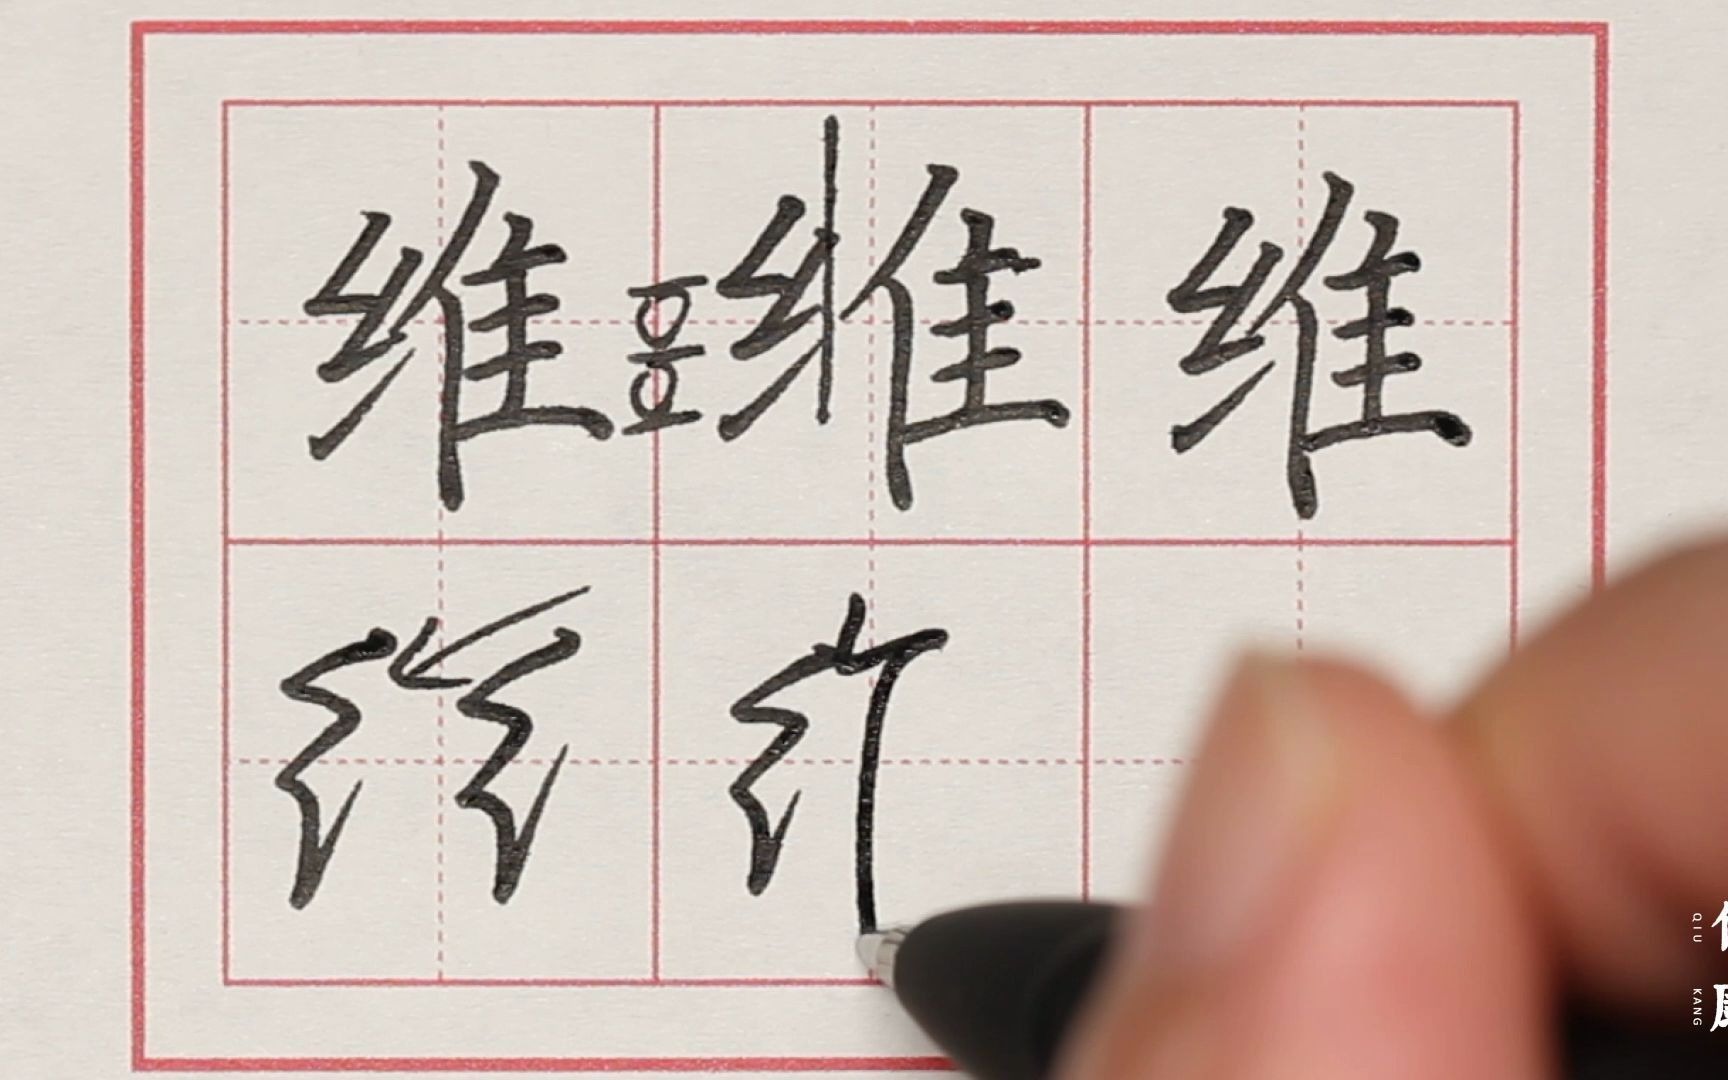 维 维 维
纟 纟
QIU
KANG